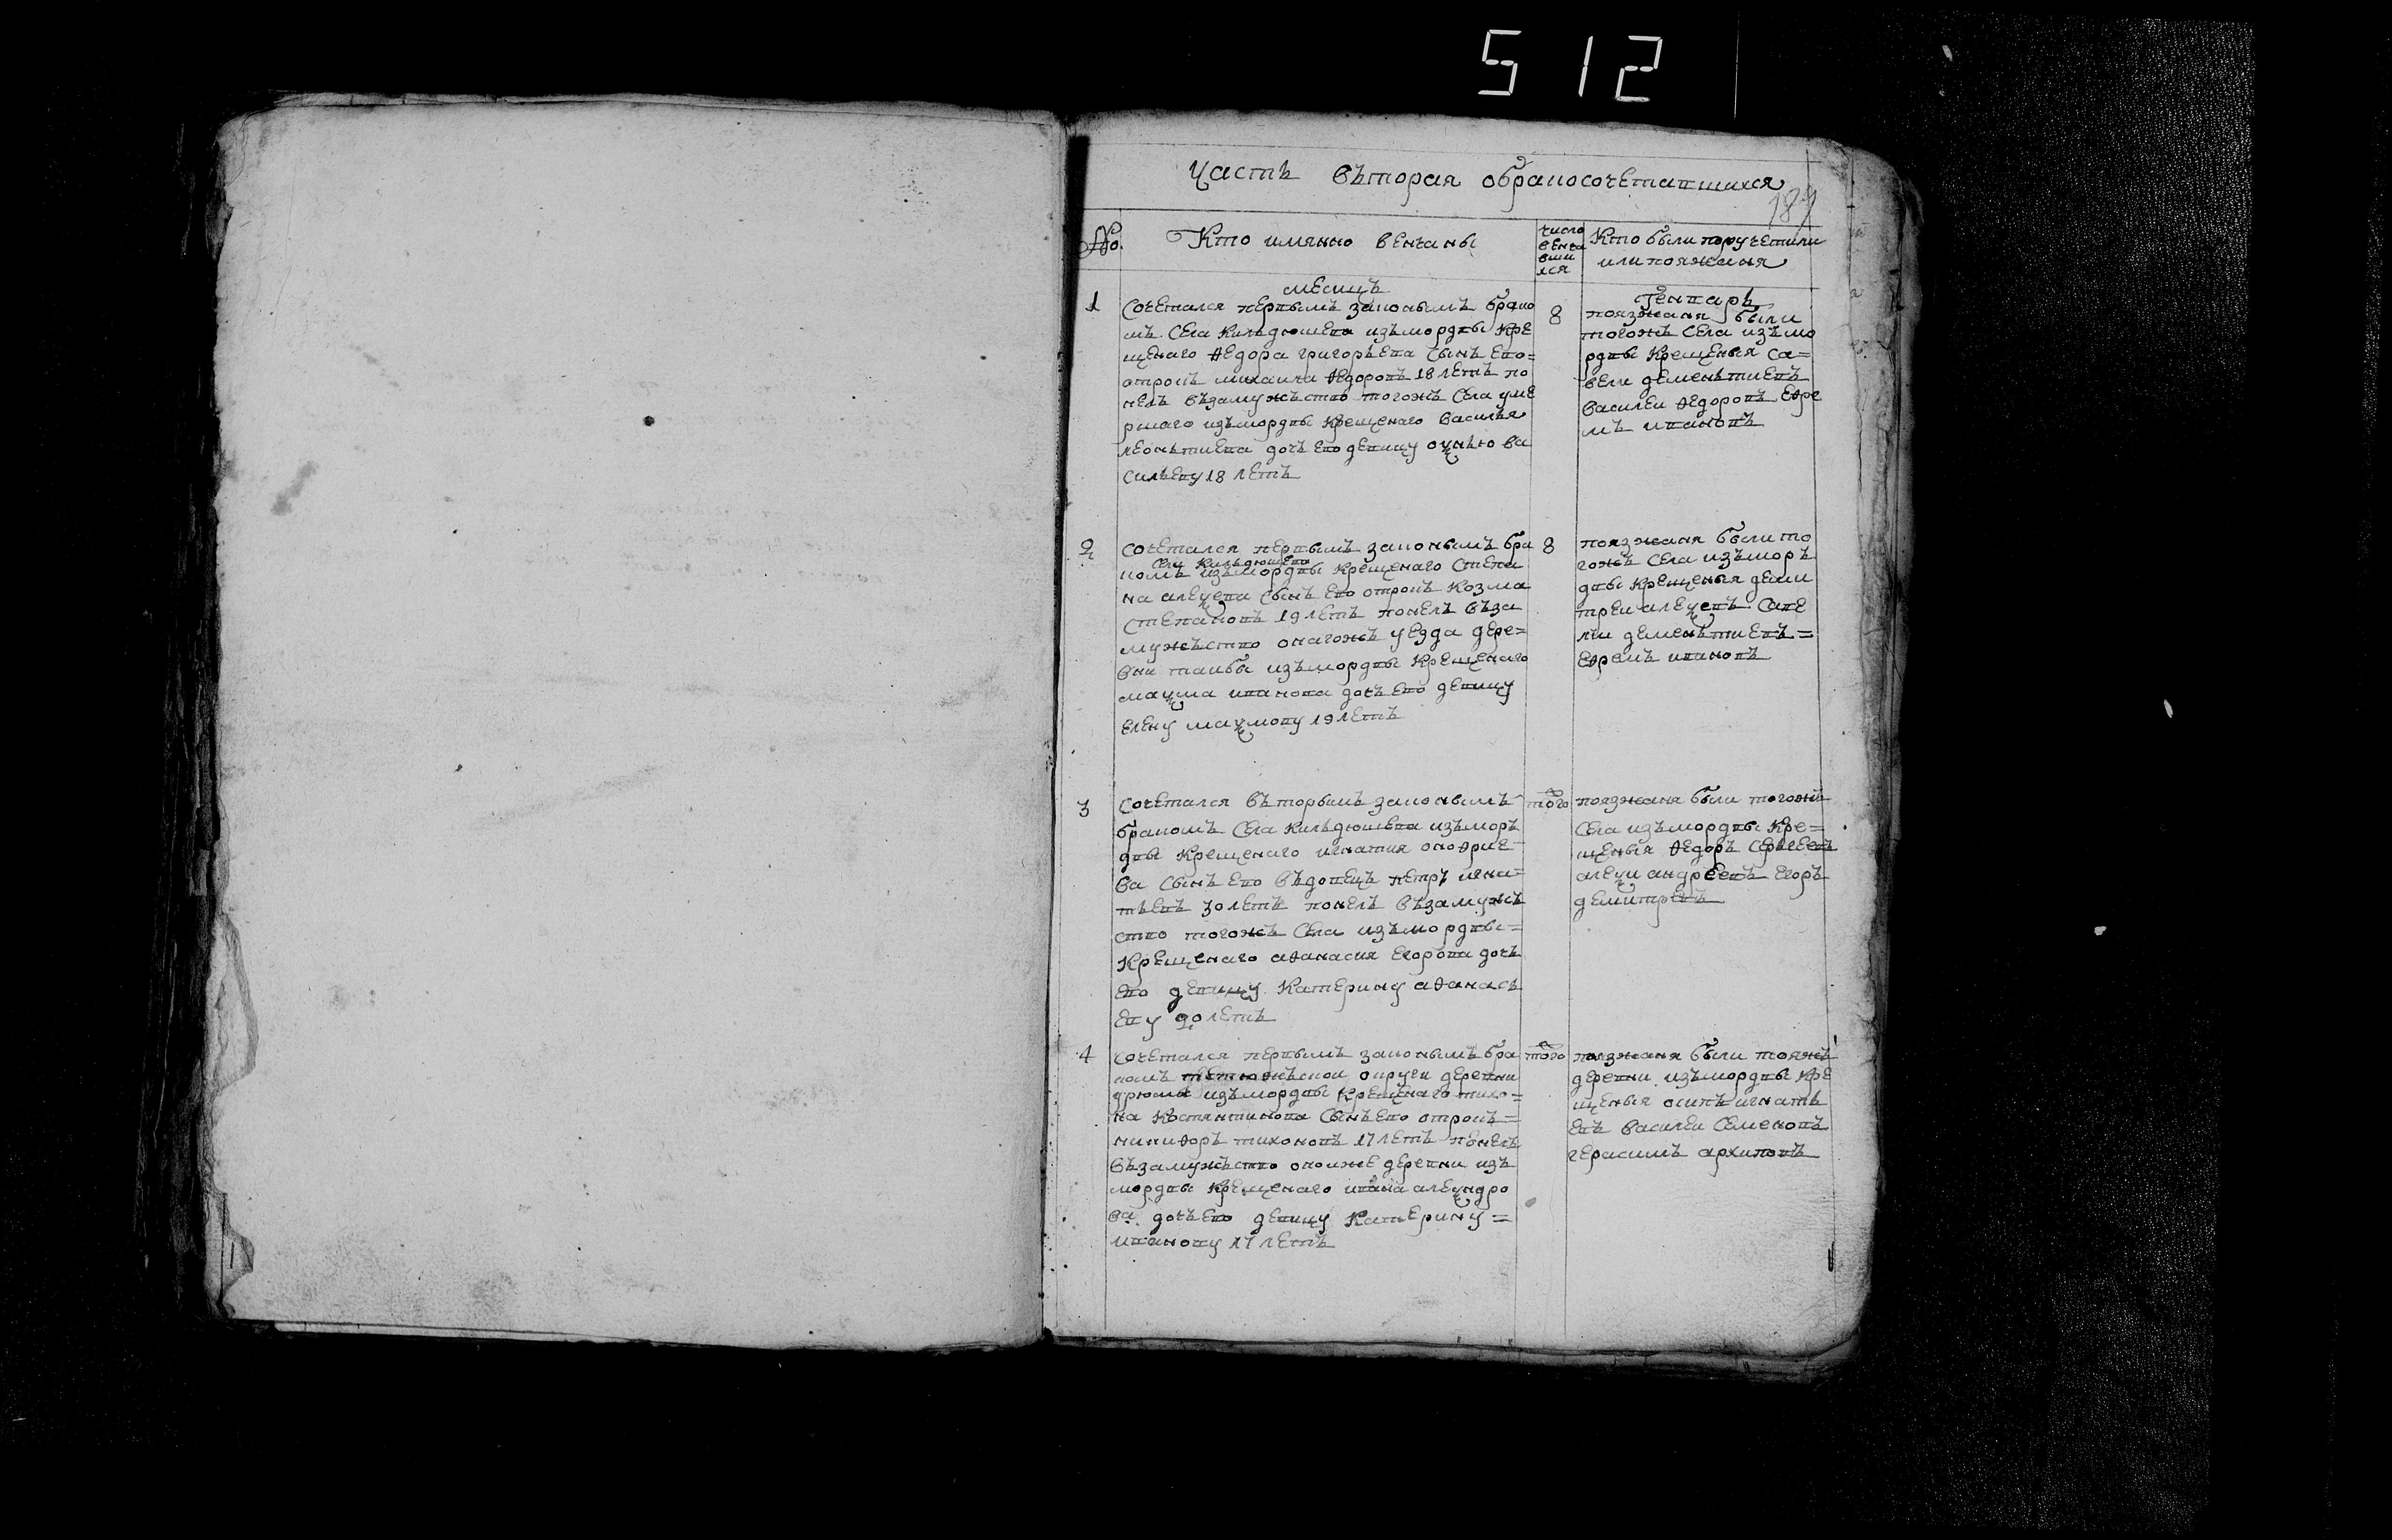 512
Часть вьторая обракосочетавшихся
189
№.
Кто имянно венчаны
число венчавшился
Кто были поручетили
или пояжаня
месицъ
Генварь
1
Сочетался первымъ законымъ брако
мъ села Кильдюшева изъмордвы кре
щенаго ѳедора григорьева сынъ ево=
отрокъ михаила ѳедоровъ 18 летъ по
нелъ възамужъство тогожъ села уме
ршаго изъмордвы крещенаго василья
леонътиева дочь ево девицу оулью ва
сильеву 18 летъ
8
поязжаня были
тогожъ села изъмо
рдвы крещеныя са=
вели деменьтиевъ
василеи ѳедоровъ еѳре
мъ ивановъ
2
сочетался первымъ законымъ бра
села Кильдюшева
комъ изъмордвы крещенаго степа
на алеѯева сынъ ево отрокъ козма
степановъ 19 летъ понелъ въза
мужъство онагожъ уезда дере=
вни таибы изъмордвы крещенаго
маѯима иванова дочь ево девицу
елену маѯмову 19 летъ
8
поязжаня были то
гожъ села изъморъ
двы крещеныя дими
треи алеѯевъ саве
лии деменьтиевъ=
еѳремъ ивановъ
3
Сочетался въторымъ законымъ
бракомъ села Кильдюшева изъморъ
двы крещенаго игнатия оноѳрие
ва сынъ ево въдовецъ петръ игна=
тьевъ 30 летъ понелъ възамужъ
ство тогожъ села изъмордвы=
крещенаго аѳанасия егорова дочь
ево девицу катерину аѳанась
еву 20 летъ
того
поязжаня были тогожъ
села изъмордвы кре=
щеныя ѳедоръ сергеевъ
алеѯи андреевъ егоръ
демитревъ
4
сочетался первымъ законымъ бра
комъ тетюжъскои округи деревни
дрюма изъмордвы крещенаго тихо=
на костянтинова сынъ ево отрокъ=
никиѳоръ тихоновъ 17 летъ понелъ
възамужъство оноиже деревни изъ
мордвы крещенаго ивана алеѯндро
ва дочь ево девицу катерину=
иванову 17 летъ
того
поязжаня были тояжъ
деревни изъмордвы кре
щеныя осипъ игнать
евъ василеи семеновъ
герасимъ архиповъ